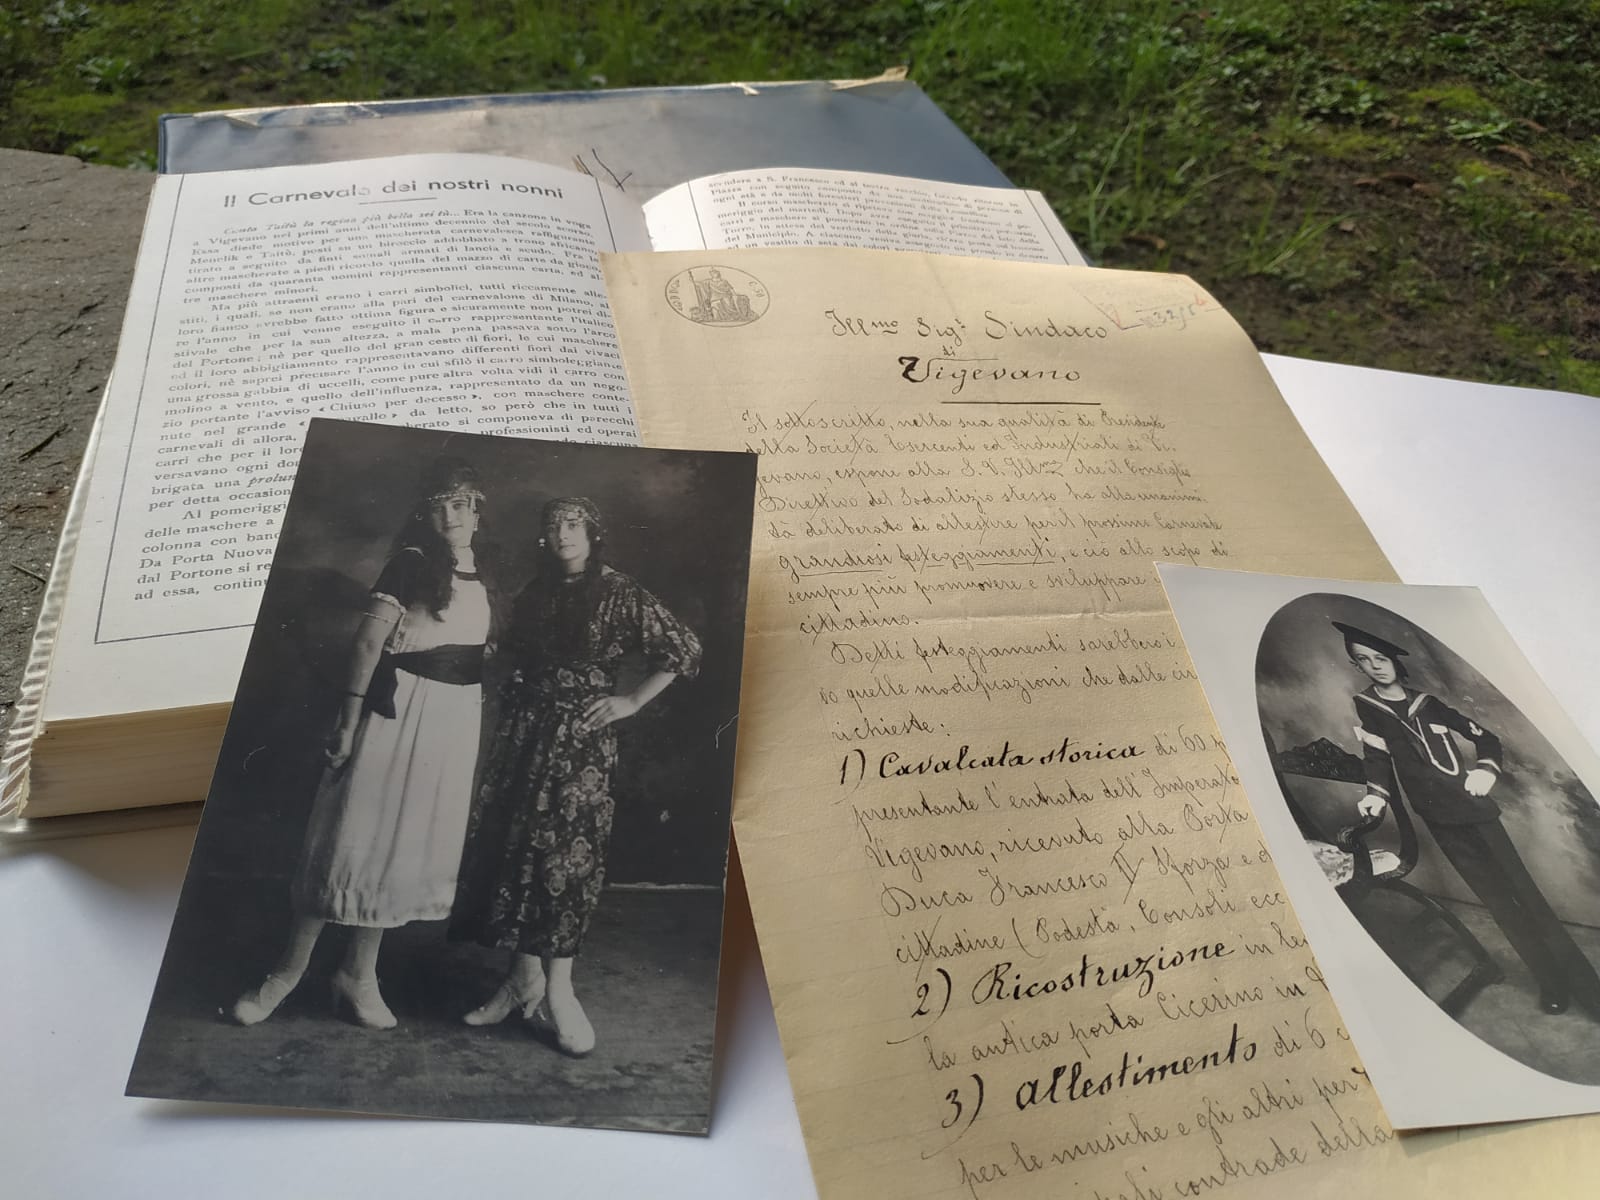 Il Carnevale dei nostri nonni
Conta Taitù la regina più bella sei tù... Era la canzone in voga
a Vigevano nei primi anni dell'ultimo decennio del secolo scorso.
Essa diede motivo per una mascherata carnevalesca raffigurante
Menelik e Taitù, posti su un biroccio addobbato a trono africano,
tirato a seguito da finti somali armati di lancia e scudo. Fra le
altre mascherate a piedi ricordo quella del mazzo di carte da gioco,
composti da quaranta uomini rappresentanti ciascuna carta, ed al-
tre maschere minori.
Ma più attraenti erano i carri simbolici, tutti riccamente alle-
stiti, i quali, se non erano alla pari del carnevalone di Milano, al
loro fianco avrebbe fatto ottima figura e sicuramente non potrei di-
re l'anno in cui venne eseguito il carro rappresentante l'italico
stivale che per la sua altezza, a mala pena passava sotto l'arco
del Portone; nè per quello del gran cesto di fiori, le cui maschere
ed il loro abbigliamento rappresentavano differenti fiori dai vivaci
colori, nè saprei precisare l'anno in cui sfilò il carro simboleggiante
una grossa gabbia di uccelli, come pure altra volta vidi il carro con
molino a vento, e quello dell'influenza, rappresentato da un nego-
zio portante l'avviso « Chiuso per decesso », con maschere conte-
nute nel grande « da letto, so però che in tutti i
carnevali di allora, si componeva di parecchi
carri che per il loro professionisti ed operai
versavano ogni ciascuna
brigata una
per detta occasion
Al pomeriggi
delle maschere a
colonna con ban
Da Porta Nuova
dal Portone si re
ad essa, contin
scendere a S. Francesco ed al teatro vecchio,
Piazza con seguito composto da una moltitudine di persone di
ogni età e da molti forestieri provenienti dalla Lomellina.
Il corso mascherato si ripeteva con maggior
meriggio del martedì. Dopo aver
carri e maschere si ponevano in ordine sulla Piazza,
Torre. In attesa del verdetto della giuria,
del Municipio. A ciascuno veniva assegnato
Ill.mo Sig.r Sindaco
di
Vigevano
Il sottoscritto, nella sua qualità di Presidente
della Società Esercenti ed Industriali di Vi-
gevano, espone alla S.V. Ill.ma che il Consiglio
Direttivo del Sodalizio stesso ha alla unanimi-
tà deliberato di allestire per il prossimo Carnevale
grandiosi festeggiamenti, e ciò allo scopo di
sempre più promuovere e sviluppare
cittadino.
Detti festeggiamenti sarebbero i
vo quelle modificazioni che dalle cir
richieste:
1) Cavalcata storica di 60
presentante l'entrata dell'Imperato
Vigevano, ricevuto alla Porta
Duca Francesco II Sforza e d
cittadine (Podestà, Consoli ecc
2) Ricostruzione in
la antica porta Cicerino in
3) Allestimento di 6 c
per le musiche e gli altri per
contrade della